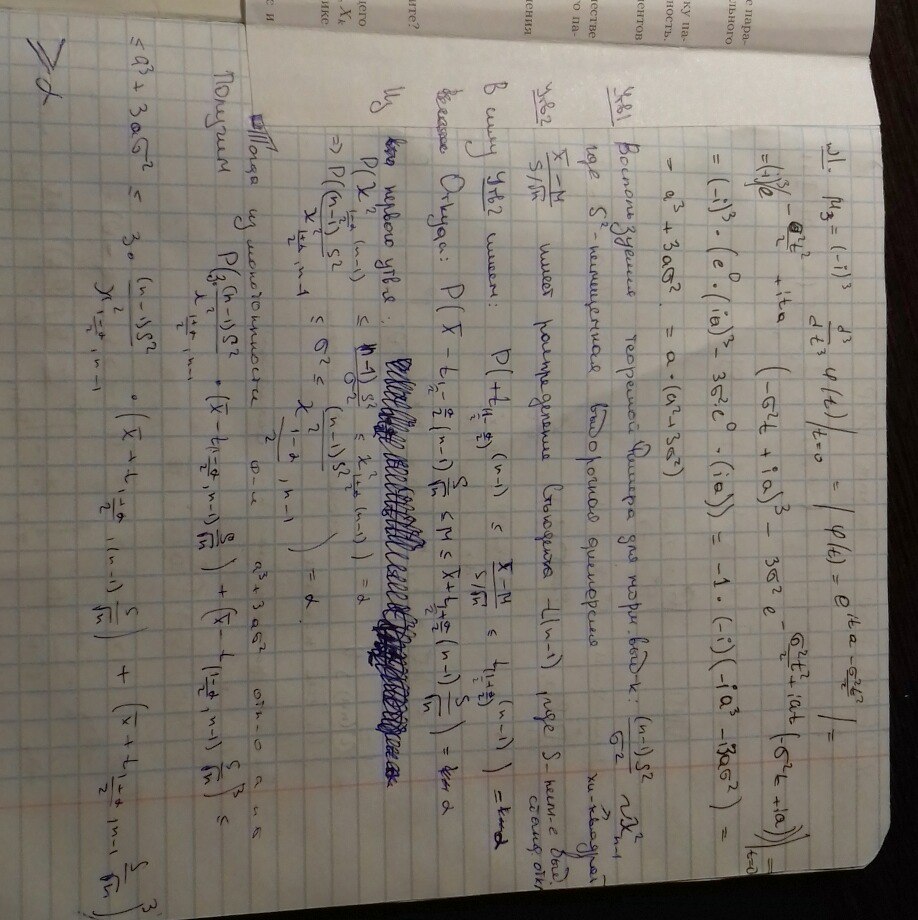 №1. μ₃ = (-i)³ d³/dt³ φ(t)|t=0 = | φ(t) = e^(ita - σ²t²/2) | =
= (-i)³(e^(-σ²t²/2 + ita) (-σ²t + ia)³ - 3σ² e^(-σ²t²/2 + iat) (-σ²t + ia))|t=0 =
= (-i)³ · (e⁰ · (ia)³ - 3σ²e⁰ · (ia)) = -1 · (-i)(-ia³ - i3aσ²) =
= a³ + 3aσ² = a · (a² + 3σ²)
Утв1 Воспользуемся теоремой Фишера для норм. выб-к: (n-1)S²/σ² ~ χ²n-1
где S² - несмещенная выборочная дисперсия хи-квадрат
Утв2 (X̄ - μ)/(S/√n) имеет распределение Стьюдента t(n-1), где S - несм-е выб. станд. откл
В силу Утв2 имеем: P(t (n-1) ≤ (X̄ - μ)/(S/√n) ≤ t (n-1)) = α
Откуда: P(X̄ - t (n-1) S/√n ≤ μ ≤ X̄ + t (n-1) S/√n) = α
Из первого утв-я:
P(χ² (n-1) ≤ (n-1)S²/σ² ≤ χ² (1+α)/2 (n-1)) = α
⇒ P((n-1)S²/χ² (1+α)/2, n-1 ≤ σ² ≤ (n-1)S²/χ² (1-α)/2, n-1) = α.
Тогда из монотонности ф-и a³ + 3aσ² отн-о a и σ
Получим P(3 · (n-1)S²/χ² (1+α)/2, n-1 · (X̄ - t (1+α)/2, n-1 S/√n) + (X̄ - t (1+α)/2, n-1 S/√n)³ ≤
≤ a³ + 3aσ² ≤ 3 · (n-1)S²/χ² (1-α)/2, n-1 · (X̄ + t (1+α)/2, (n-1) S/√n) + (X̄ + t (1+α)/2, n-1 S/√n)³)
≥ α